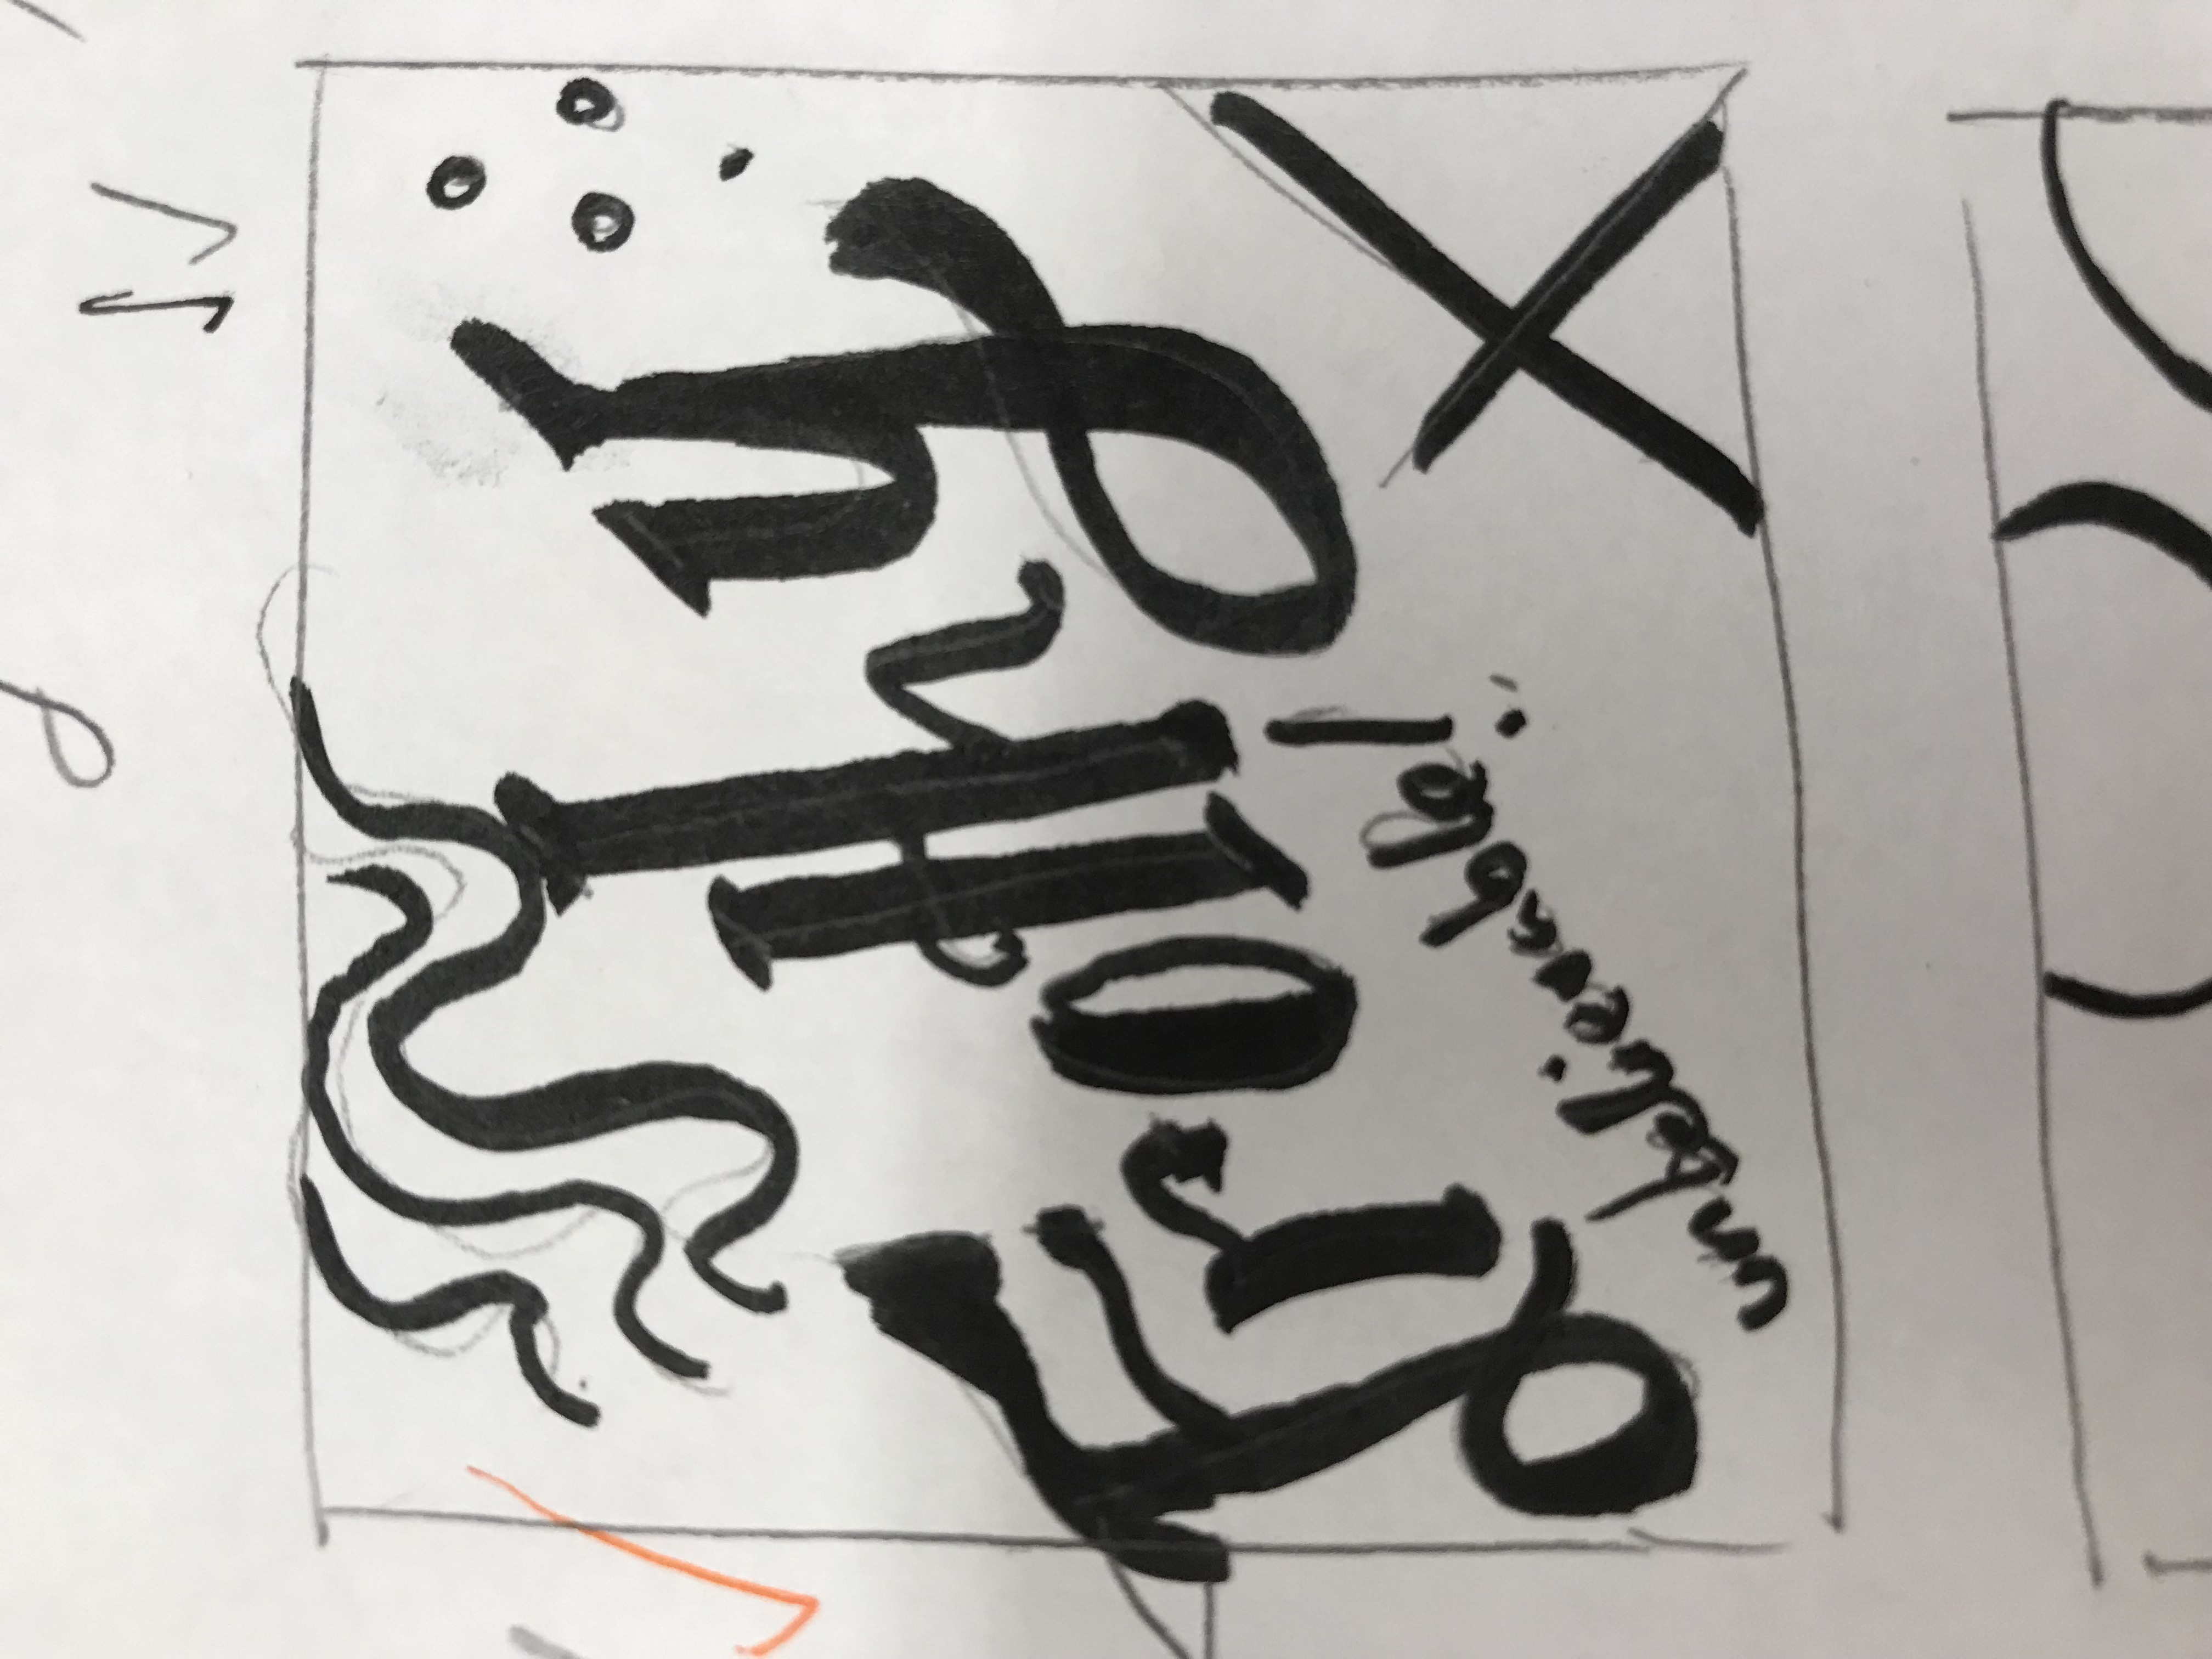 Frothy
unbelievable!
X